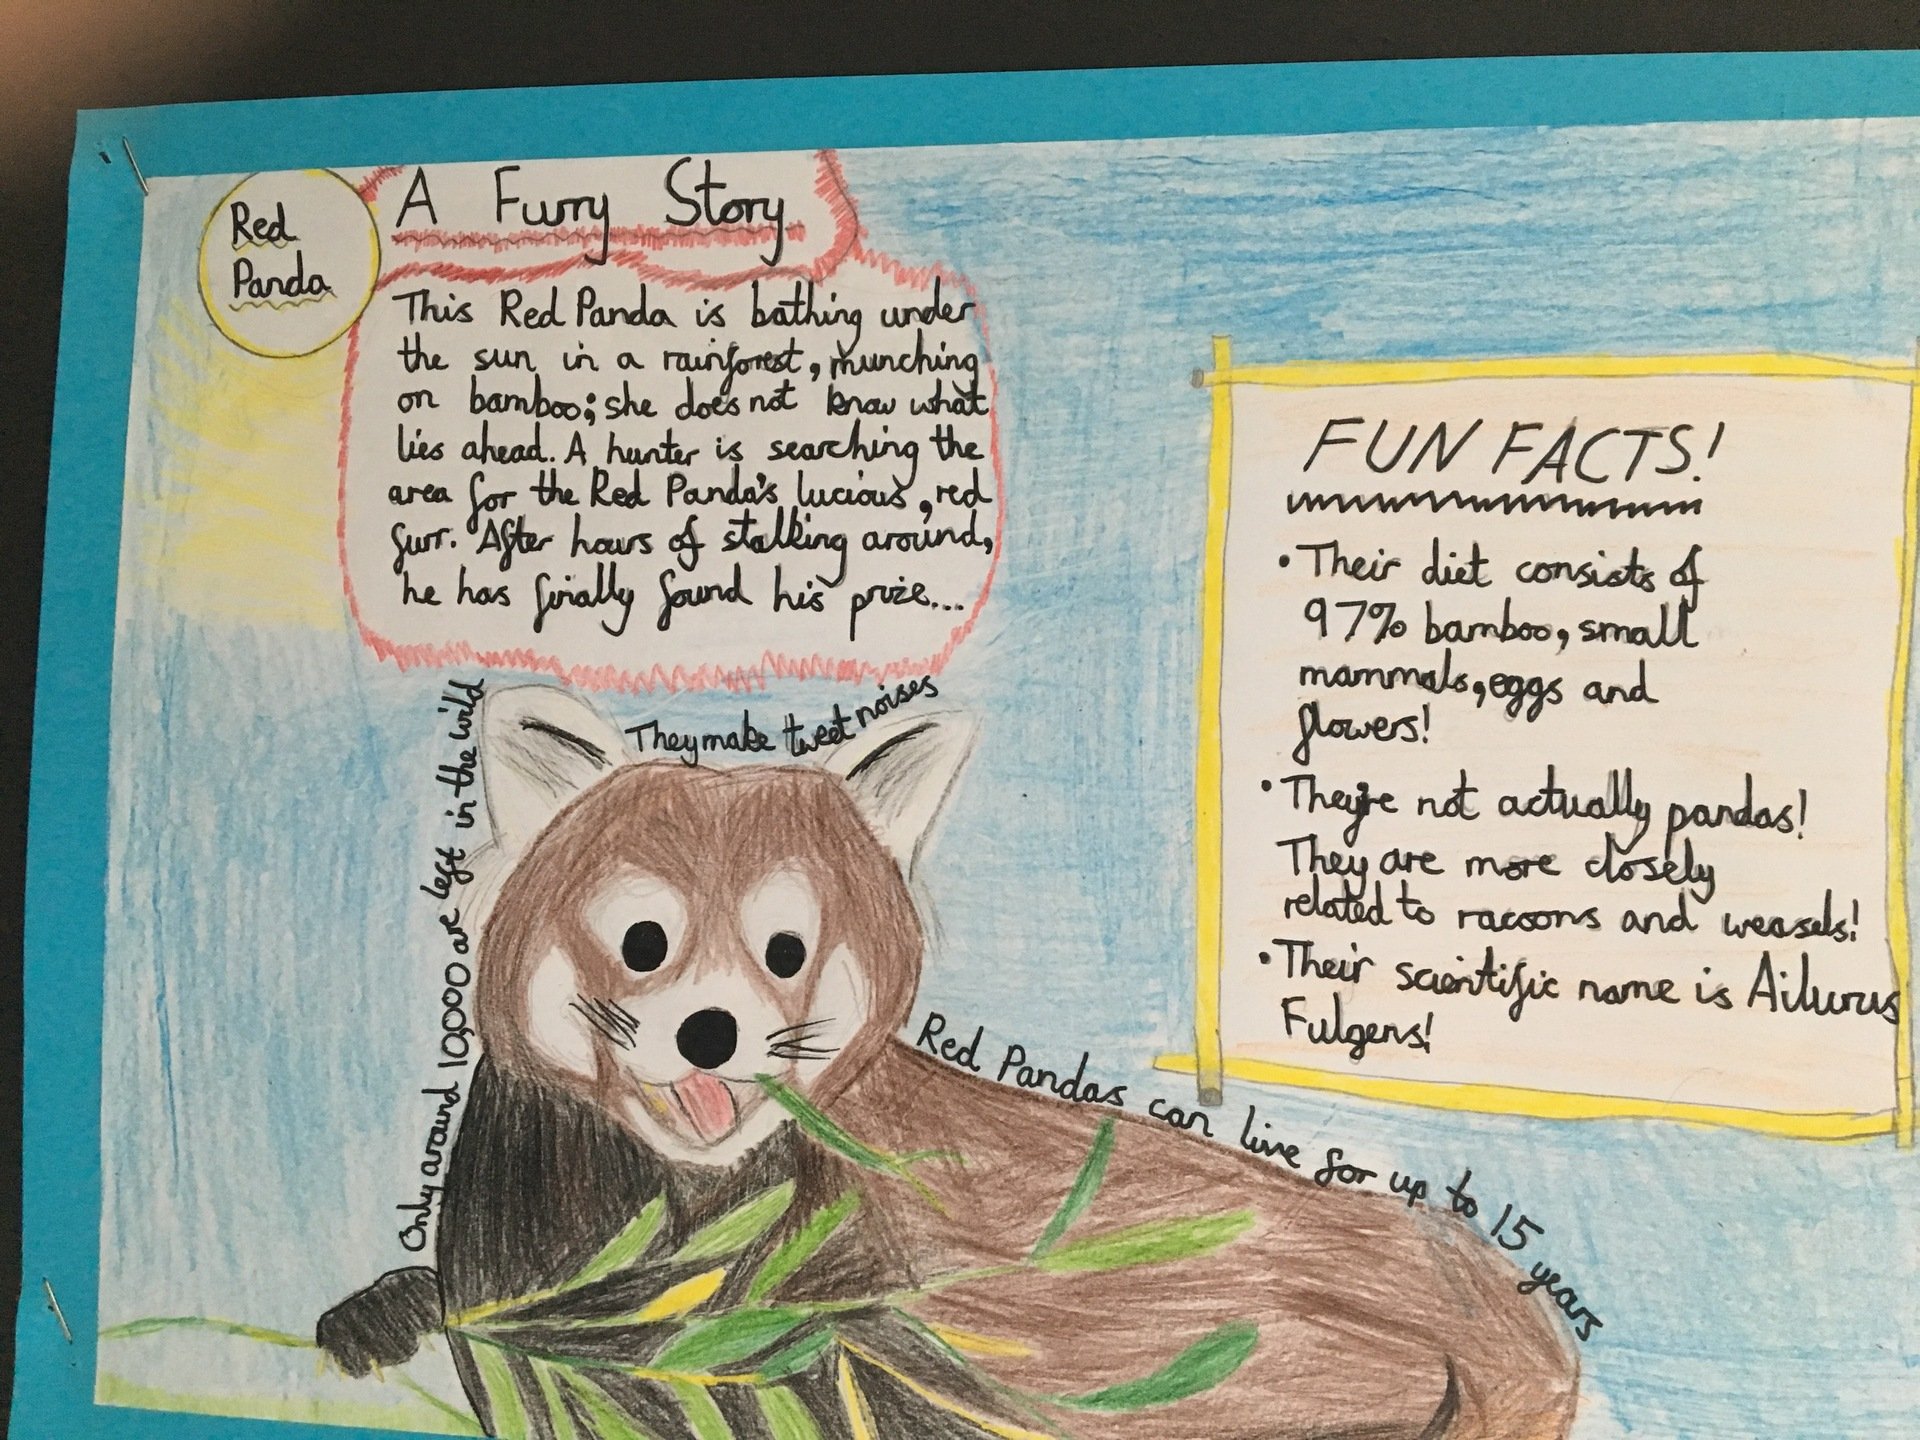 Red
Panda
A Furry Story
This Red Panda is bathing under
the sun in a rainforest, munching
on bamboo; she does not know what
lies ahead. A hunter is searching the
area for the Red Panda's lucious, red
furr. After hours of stalking around,
he has finally found his prize...
They make tweet noises
Only around 10,000 are left in the wild
FUN FACTS!
• Their diet consists of
97% bamboo, small
mammals, eggs and
flowers!
• They're not actually pandas!
They are more closely
related to racoons and weasels!
• Their scientific name is Ailurus
Fulgens!
Red Pandas can live for up to 15 years